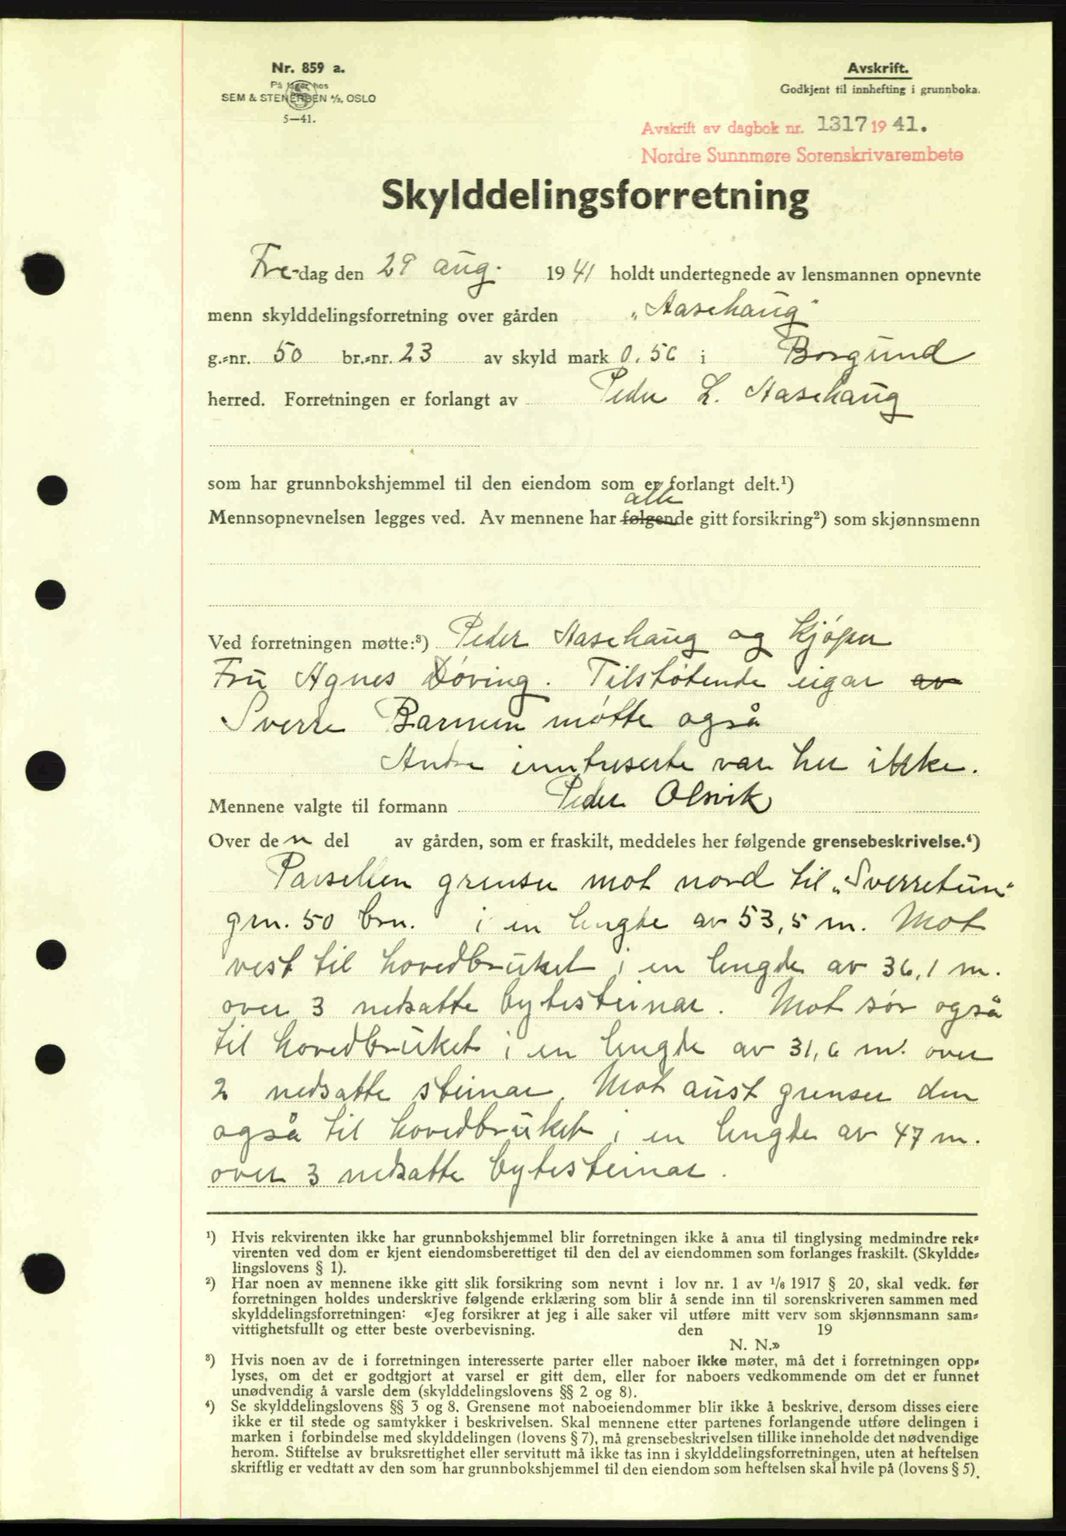 Nr. 859 a.
På lager hos
SEM & STENERSEN A/S, OSLO
5—41.
Avskrift.
Godkjent til innhefting i grunnboka.
Avskrift av dagbok nr. 1317 19 41.
Nordre Sunnmøre Sorenskrivarembete
Skylddelingsforretning
Fre-dag den 29 aug. 19 41 holdt undertegnede av lensmannen opnevnte
menn skylddelingsforretning over gården „Aasehaug"
g.-nr. 50 br.-nr. 23 av skyld mark 0.56 i Borgund
herred. Forretningen er forlangt av Peder L. Aasehaug
som har grunnbokshjemmel til den eiendom som er forlangt delt.¹)
alle
Mennsopnevnelsen legges ved. Av mennene har følgende gitt forsikring²) som skjønnsmenn
Ved forretningen møtte:³) Peder Aasehaug og kjøper
Fru Agnes Døving. Tilstøtende eigar av
Sverre Barmen møtte også
Andre inntereserte var her ikke.
Mennene valgte til formann Peder Olsvik
Over den del av gården, som er fraskilt, meddeles her følgende grensebeskrivelse.⁴)
Parsellen grenser mot nord til „Sverretun"
grn. 50 brn. i en lengde av 53,5 m. Mot
vest til hovedbruket i en lengde av 36,1 m.
over 3 nedsatte bytesteinar. Mot sør også
til hovedbruket i en lengde av 31,6 m. over
2 nedsatte steinar. Mot aust grenser den
også til hovedbruket i en lengde av 47 m.
over 3 nedsatte bytesteinar.
¹) Hvis rekvirenten ikke har grunnbokshjemmel blir forretningen ikke å anta til tinglysing medmindre rek-
virenten ved dom er kjent eiendomsberettiget til den del av eiendommen som forlanges fraskilt. (Skyldde-
lingslovens § 1).
²) Har noen av mennene ikke gitt slik forsikring som nevnt i lov nr. 1 av 1/6 1917 § 20, skal vedk. før
forretningen holdes underskrive følgende erklæring som blir å sende inn til sorenskriveren sammen med
skylddelingsforretningen: «Jeg forsikrer at jeg i alle saker vil utføre mitt verv som skjønnsmann sam-
vittighetsfullt og etter beste overbevisning. den 19
N. N.»
³) Hvis noen av de i forretningen interesserte parter eller naboer ikke møter, må det i forretningen opp-
lyses, om det er godtgjort at varsel er gitt dem, eller for naboers vedkommende om det er funnet
unødvendig å varsle dem (skylddelingslovens §§ 2 og 8).
⁴) Se skylddelingslovens §§ 3 og 8. Grensene mot naboeiendommer blir ikke å beskrive, dersom disses eiere
ikke er til stede og samtykker i beskrivelsen. Skal mennene etter partenes forlangende utføre delingen i
marken i forbindelse med skylddelingen (lovens § 7), må grensebeskrivelsen tillike inneholde det nødvendige
herom. Stiftelse av bruksrettighet eller servitutt må ikke tas inn i skylddelingsforretningen, uten at heftelsen
skriftlig er vedtatt av den som har grunnbokshjemmel til den eiendom som heftelsen skal hvile på (lovens § 5).